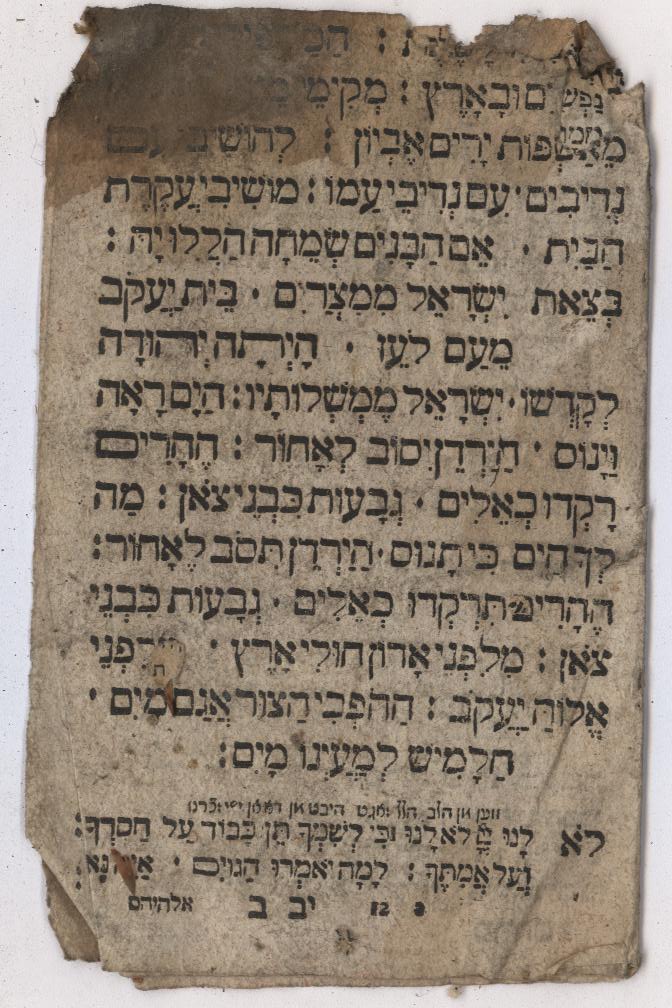 נַפְשׁ ִם וּבָאָרֶץ : מְקִימִי
מֵאַשְׁפּוֹת יָרִים אֶבְיוֹן : לְהוֹשִׁיבִי עִם
נְדִיבִים ּ עִם נְדִיבֵי עַמּוֹ : מוֹשִׁיבִי עֲקֶרֶת
הַבַּיִת ּ אֵם הַבָּנִים שְׂמֵחָה הַלְלוּיָהּ :
בְּצֵאת יִשְׂרָאֵל מִמִּצְרָיִם ּ בֵּית יַעֲקֹב
מֵעַם לֹעֵז ּ הָיְתָה יְהוּדָה
לְקָדְשׁוֹ ּ יִשְׂרָאֵל מַמְשְׁלוֹתָיו : הַיָּם רָאָה
וַיָּנוֹס ּ הַיַּרְדֵּן יִסּוֹב לְאָחוֹר : הֶהָרִים
רָקְדוּ כְאֵלִים ּ גְּבָעוֹת כִּבְנֵי צֹאן : מַה
לְּךָ הַיָּם כִּי תָנוּס ּ הַיַּרְדֵּן תִּסֹּב לְאָחוֹר :
הֶהָרִים תִּרְקְדוּ כְאֵלִים ּ גְּבָעוֹת כִּבְנֵי
צֹאן : מִלִּפְנֵי אָדוֹן חוּלִי אָרֶץ ּ מִלִּפְנֵי
אֱלוֹהַּ יַעֲקֹב : הַהֹפְכִי הַצּוּר אֲגַם מָיִם ּ
חַלָּמִישׁ לְמַעְיְנוֹ מָיִם :
לֹא לָנוּ יְיָ לֹא לָנוּ כִּי לְשִׁמְךָ תֵּן כָּבוֹד עַל חַסְדְּךָ :
וְעַל אֲמִתֶּךָ : לָמָּה יֹאמְרוּ הַגּוֹיִם ּ אַיֵּה נָא
יב ב 12 אלהיהם